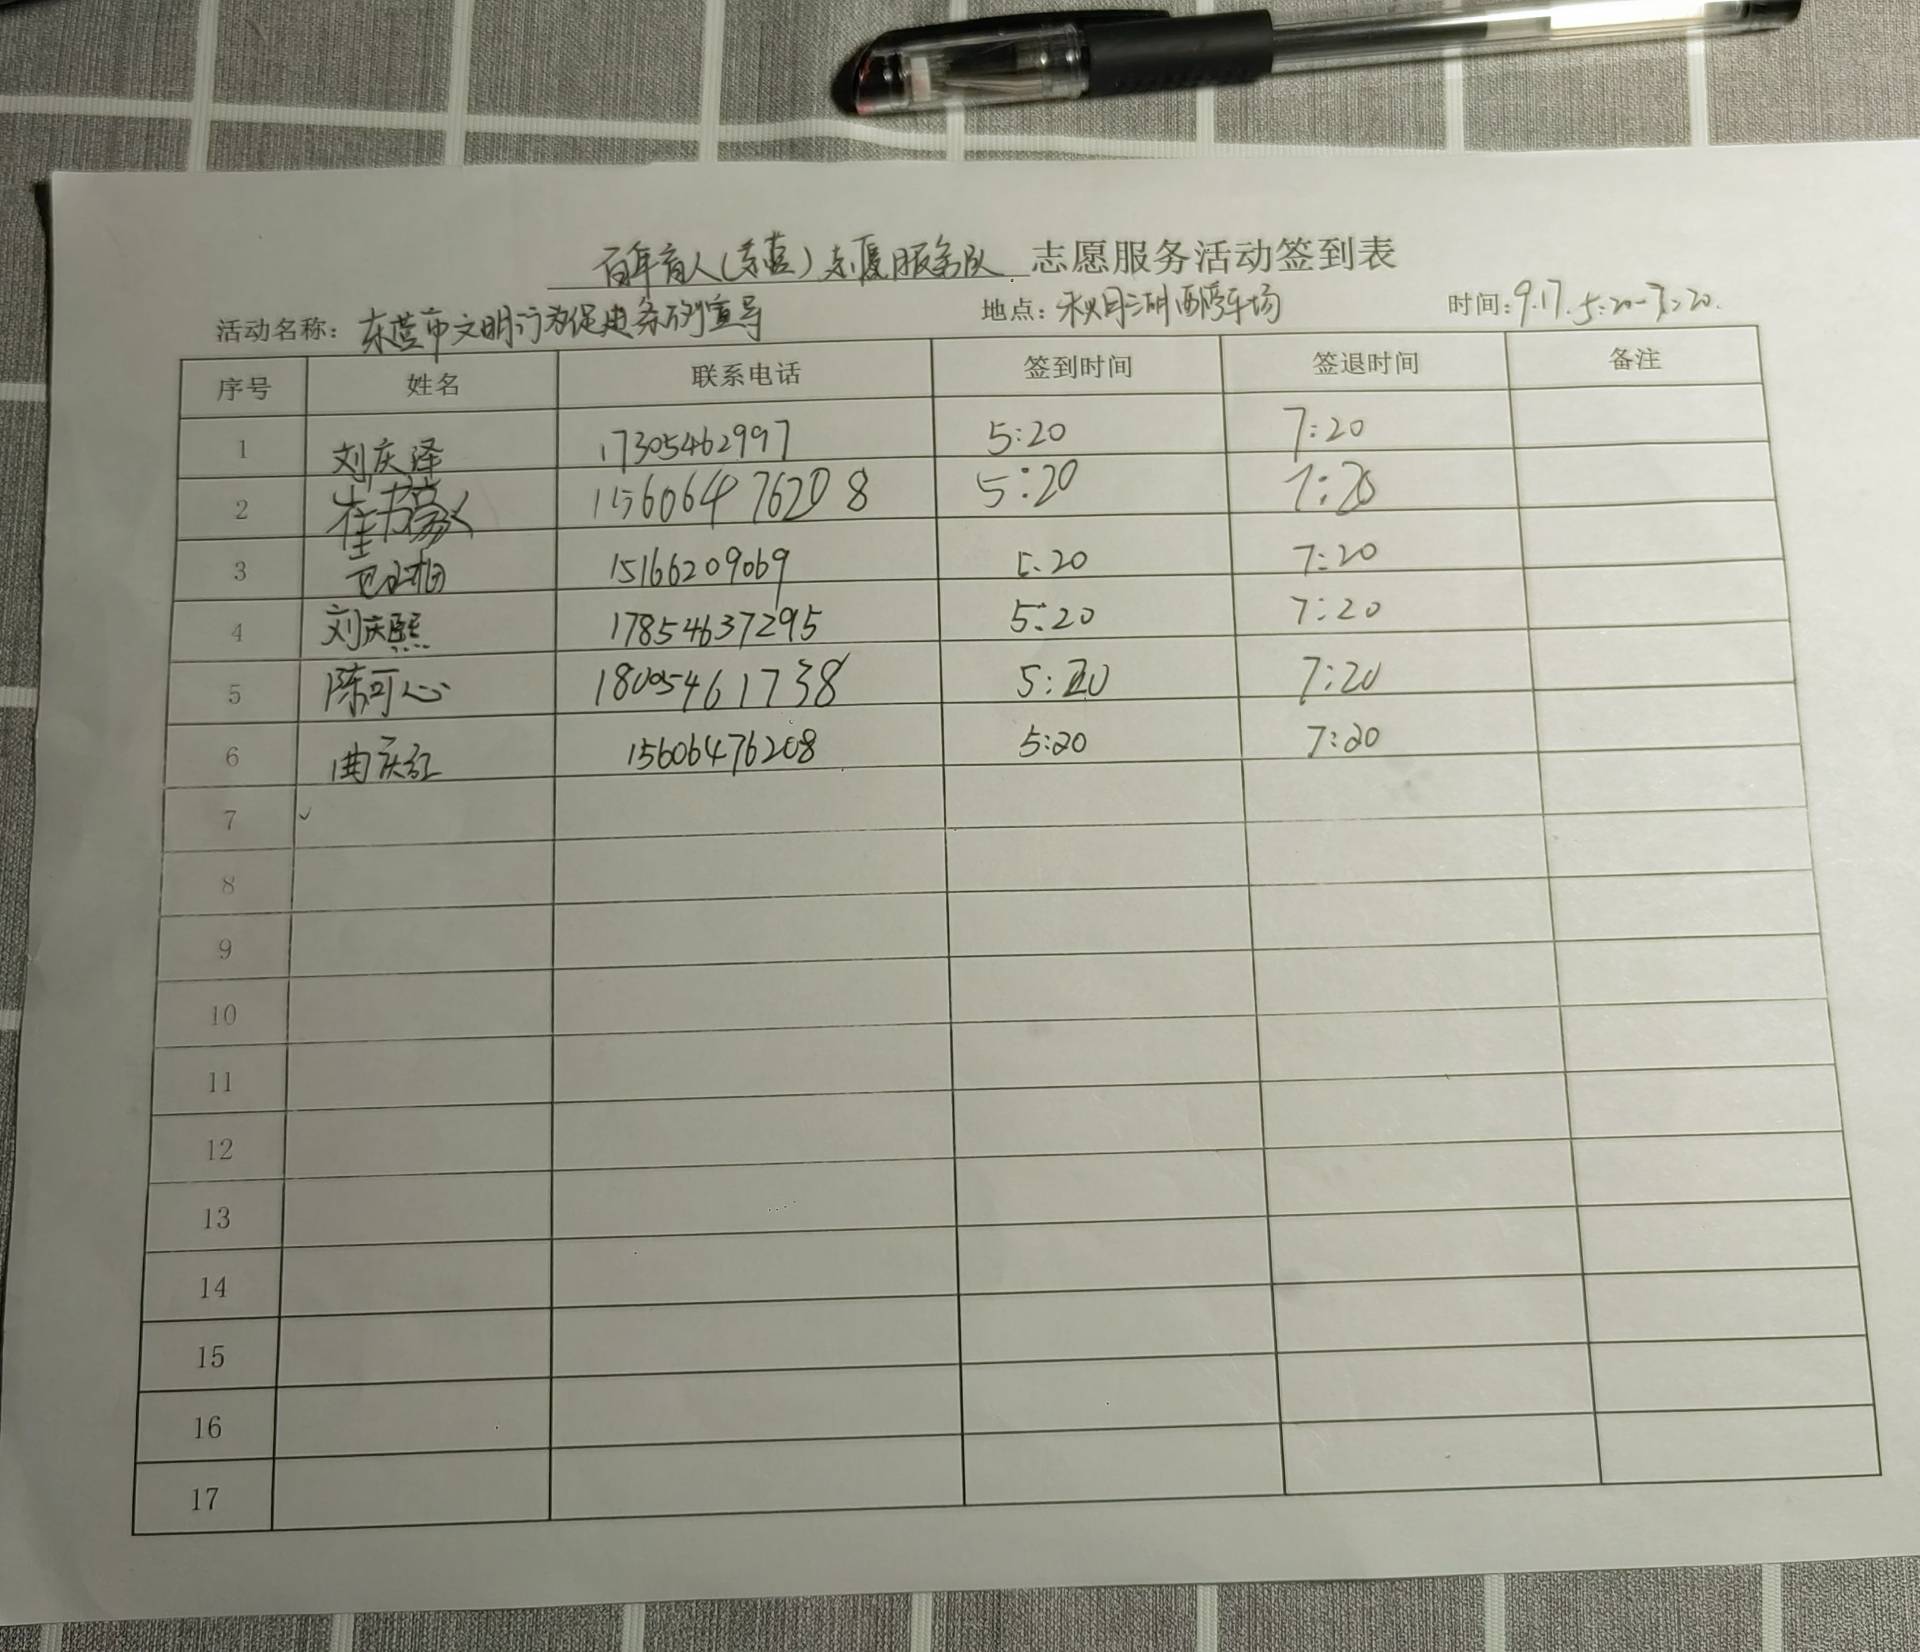 百年育人(东营)志愿服务队 志愿服务活动签到表
活动名称: 东营市文明行为促进条例宣导 地点: 秋月湖西停车场 时间: 9.17. 5:20-7:20.
序号 姓名 联系电话 签到时间 签退时间 备注
1 刘庆泽 17305462997 5:20 7:20
2 崔书豪 15606476208 5:20 7:20
3 15166209069 5:20 7:20
4 刘庆熙 17854637295 5:20 7:20
5 陈可心 18005461738 5:20 7:20
6 曲庆红 15606476208 5:20 7:20
7
8
9
10
11
12
13
14
15
16
17